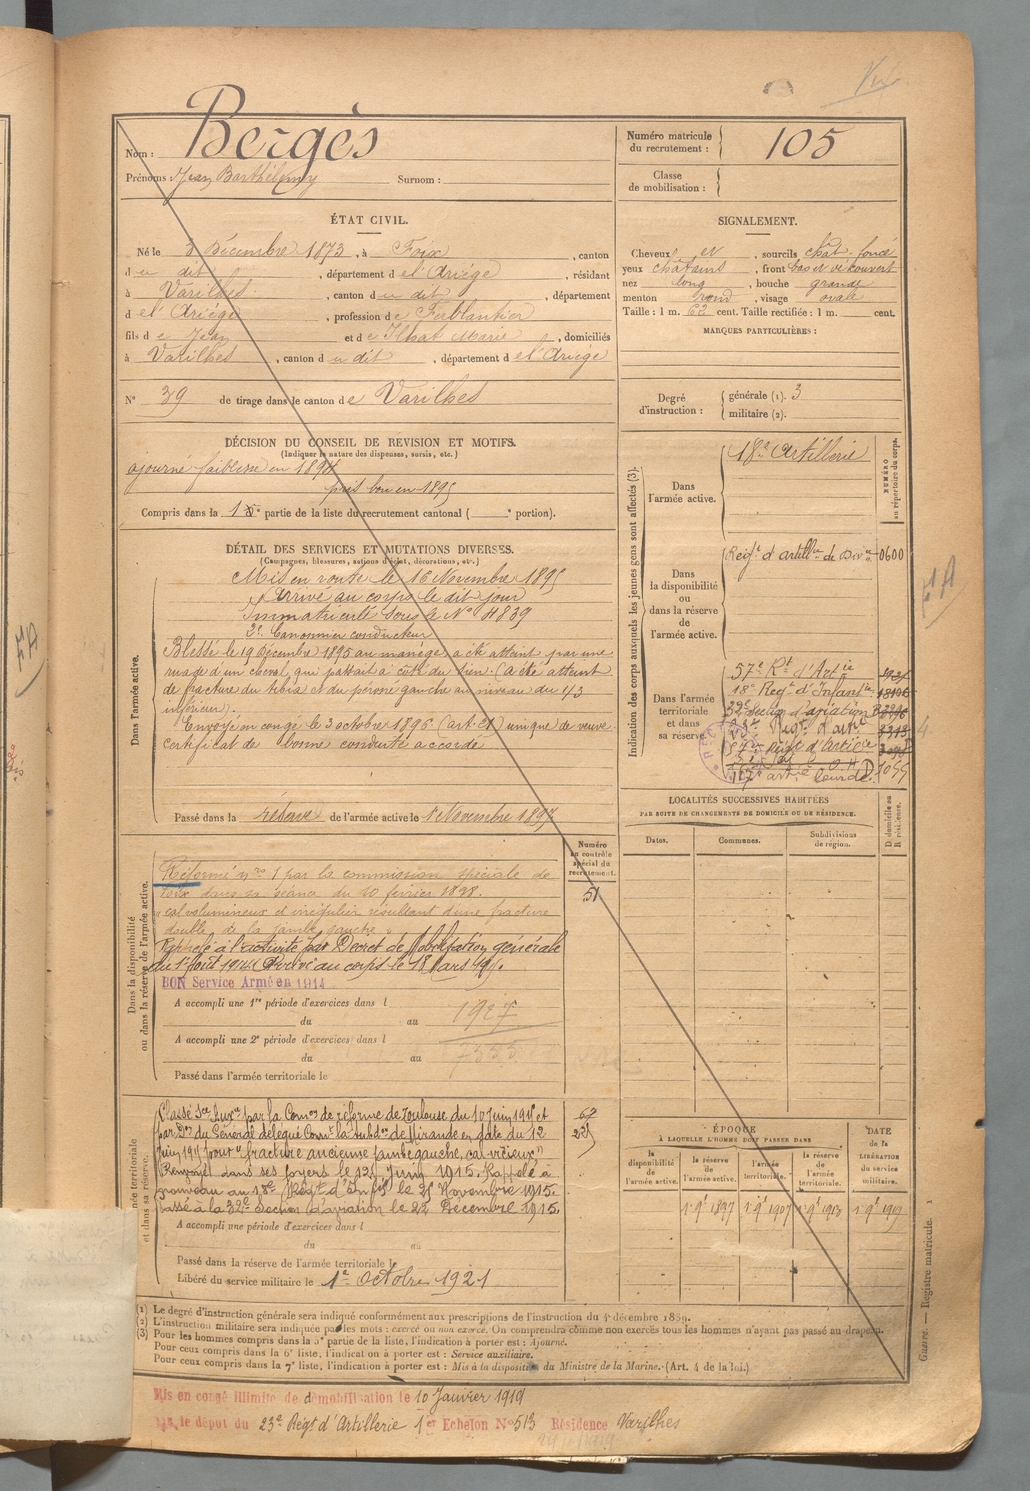 Nom : Bergès
Prénoms : Jean Barthélemy Surnom :
Numéro matricule du recrutement : 105
Classe de mobilisation :
ÉTAT CIVIL.
Né le 3 Décembre 1873, à Foix, canton
du dit, département de l'Ariège, résidant
à Varilhes, canton du dit, département
de l'Ariège, profession de Ferblantier
fils de Jean et de Ilhat Marie, domiciliés
à Varilhes, canton du dit, département de l'Ariège
N° 39 de tirage dans le canton de Varilhes
SIGNALEMENT.
Cheveux et, sourcils chât. foncé
yeux châtains, front bas et découvert
nez long, bouche grande
menton rond, visage ovale
Taille : 1 m. 62 cent. Taille rectifiée : 1 m. cent.
MARQUES PARTICULIÈRES :
Degré d'instruction : générale (1). 3
militaire (2).
DÉCISION DU CONSEIL DE RÉVISION ET MOTIFS.
(Indiquer la nature des dispenses, sursis, etc.)
ajourné faiblesse en 1894
pris bon en 1895
Compris dans la partie de la liste du recrutement cantonal ( portion).
DÉTAIL DES SERVICES ET MUTATIONS DIVERSES.
(Campagnes, blessures, actions d'éclat, décorations, etc.)
Dans l'armée active.
Mis en route le 16 Novembre 1895
Arrivé au corps le dit jour
Immatriculé sous le N° 4839
2e Canonnier conducteur
Blessé le 19 décembre 1895 au manège, a été atteint par une
ruade d'un cheval qui passait à côté du sien. (A été atteint
de fracture du tibia et du péroné gauche au niveau du 1/3
inférieur).
Envoyé en congé le 3 octobre 1896 (art. 21) unique de veuve
certificat de bonne conduite accordé
Passé dans la réserve de l'armée active le 1er Novembre 1897
Indication des corps auxquels les jeunes gens sont affectés (3).
NUMÉRO au répertoire du corps.
Dans l'armée active.
18e Artillerie
Dans la disponibilité ou dans la réserve de l'armée active.
Régt d'artillie de 0600
Dans l'armée territoriale et dans sa réserve.
57e Rt d'Artie
18e Régt d'Infantie
32e Section d'aviation
23e Régt d'artie
57e Régt d'Artie
117e artie lourde. 1055
LOCALITÉS SUCCESSIVES HABITÉES
PAR SUITE DE CHANGEMENTS DE DOMICILE OU DE RÉSIDENCE.
Dates. Communes. Subdivisions de région. D domicile ou R résidence.
Numéro au contrôle spécial du recrutement.
51
Dans la disponibilité ou dans la réserve de l'armée active.
Réformé no 1 par la commission spéciale de
Foix dans sa séance du 10 février 1898.
"cal volumineux et irrégulier résultant d'une fracture
double de la jambe gauche"
Rappelé à l'activité par Décret de Mobilisation générale
du 1er Août 1914. Arrivé au corps le 18 Mars 1915.
BON Service Armé en 1914
A accompli une 1re période d'exercices dans l
du au
1927
A accompli une 2e période d'exercices dans l
du au
Passé dans l'armée territoriale le
Classé Sce Auxre par la Comon de réforme de Toulouse du 10 Juin 1915 et
par Don du Général délégué Comt la subdon de Mirande en date du 12
Juin 1915 pour "fracture ancienne jambe gauche, cal vicieux"
Renvoyé dans ses foyers le 12 Juin 1915. Rappelé à
nouveau au 18e Régt d'Inf le 25 Novembre 1915.
Passé à la 32e Section d'aviation le 22 Décembre 1915.
A accompli une période d'exercices dans l
du au
Passé dans la réserve de l'armée territoriale le
Libéré du service militaire le 1er Octobre 1921
ÉPOQUE
À LAQUELLE L'HOMME DOIT PASSER DANS
la disponibilité de l'armée active. la réserve de l'armée active. l'armée territoriale. la réserve de l'armée territoriale.
DATE de la LIBÉRATION du service militaire.
1er 9bre 1897 1er 9bre 1907 1er 9bre 1913 1er 9bre 1919
(1) Le degré d'instruction générale sera indiqué conformément aux prescriptions de l'instruction du 4 décembre 1889.
(2) L'instruction militaire sera indiquée par les mots : exercé ou non exercé. On comprendra comme non exercés tous les hommes n'ayant pas passé au drapeau.
(3) Pour les hommes compris dans la 5e partie de la liste, l'indication à porter est : Ajourné.
Pour ceux compris dans la 6e liste, l'indication à porter est : Service auxiliaire.
Pour ceux compris dans la 7e liste, l'indication à porter est : Mis à la disposition du Ministre de la Marine. (Art. 4 de la loi.)
Guerre. — Registre matricule. 1
Mis en congé illimité de démobilisation le 10 Janvier 1919
par le dépôt du 23e Régt d'Artillerie 1er Echelon N° 513 Résidence Varilhes